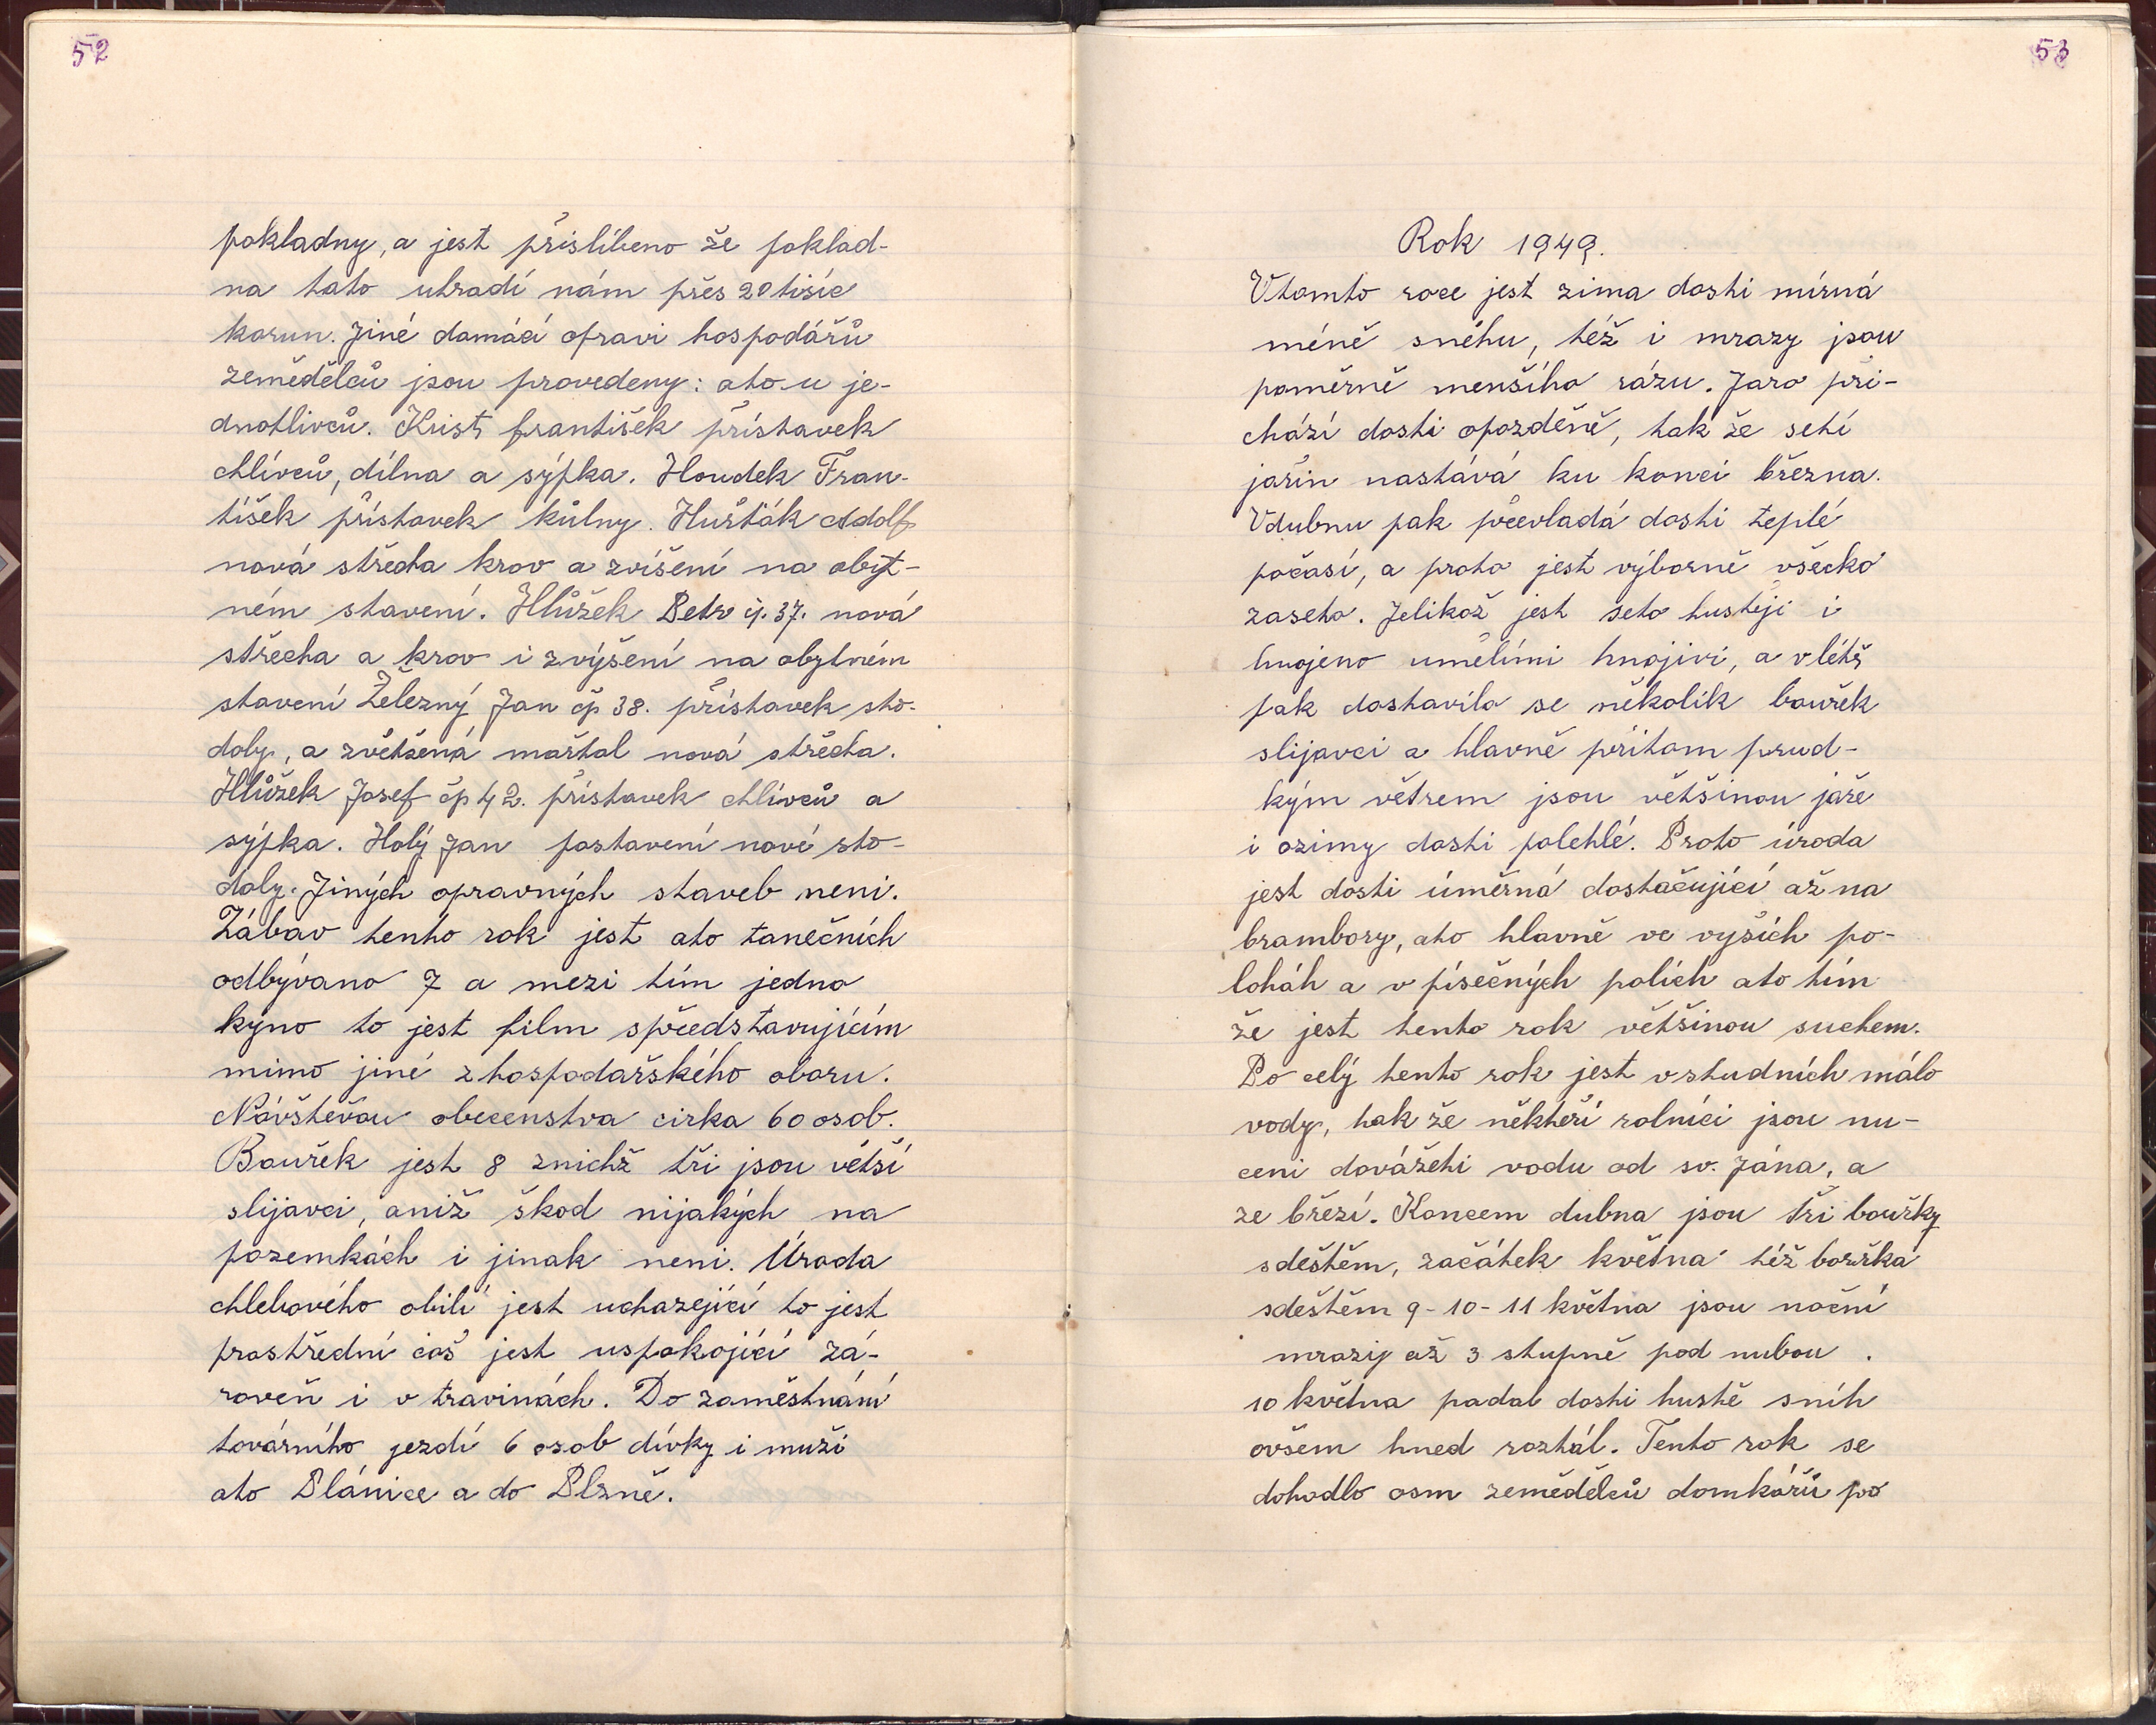 52
pokladny, a jest přislíbeno že poklad-
na tato uhradí nám přes 20 tisíc
korun. Jiné damácí opravi hospodářů
zemědělců jsou provedeny: ato u je-
dnotlivců. Krist františek přístavek
chlívců, dílna a sýpka. Houdek Fran-
tišek přístavek kůlny. Hušták Adolf
nová střecha krov a zvíšení na obyt-
ném stavení. Hlůžek Petr čp. 37. nová
střecha a krov i zvýšení na obytném
stavení Železný Jan čp 38. přístavek sto-
doly, a zvětšená maštal nová střecha.
Hlůžek Josef čp 42. přístavek chlívců a
sýpka. Holý Jan postavení nové sto-
doly. Jiných opravných staveb neni.
Zábav tento rok jest ato tanečních
odbývano 7 a mezi tím jedno
kyno to jest film spředstavujícím
mimo jiné zhospodařského oboru.
Návštěvou obecenstva cirka 60 osob.
Bouřek jest 8 znichž tři jsou větší
slijavci, aniž škod nijakých na
pozemkách i jinak neni. Úroda
chlebového obilí jest ucházející to jest
prostřední což jest uspokojící zá-
roveň i v travinách. Do zaměstnání
továrního jezdí 6 osob dívky i muži
ato Plánice a do Plzně.
53
Rok 1949.
Vtomto roce jest zima dosti mírná
méně sněhu, též i mrazy jsou
poměrně menšího rázu. Jaro při-
chází dosti opozděně, tak že setí
jařin nastává ku konci března.
Vdubnu pak převladá dosti teplé
počasí, a proto jest výborně všecko
zaseto. Jelikož jest seto hustěji i
hnojeno umělími hnojivi, a vlétě
pak dostavilo se několik bouřek
slijavci a hlavně přitom prud-
kým větrem jsou většinou jaře
i ozimy dosti polehlé. Proto úroda
jest dosti úměrná dostačující až na
brambory, ato hlavně ve vyšších po-
loháh a v písečných polích ato tím
že jest tento rok většinou suchem.
Po celý tento rok jest vstudních málo
vody, tak že někteří rolníci jsou nu-
ceni dovážeti vodu od sv. Jána, a
ze březí. Koncem dubna jsou tři bouřky
sdeštěm, začátek května též bouřka
sdeštěm 9-10-11 května jsou noční
mrazy až 3 stupně pod nulou.
10 května padal dosti hustě sníh
ovšem hned roztál. Tento rok se
dohodlo osm zemědělců domkářů po